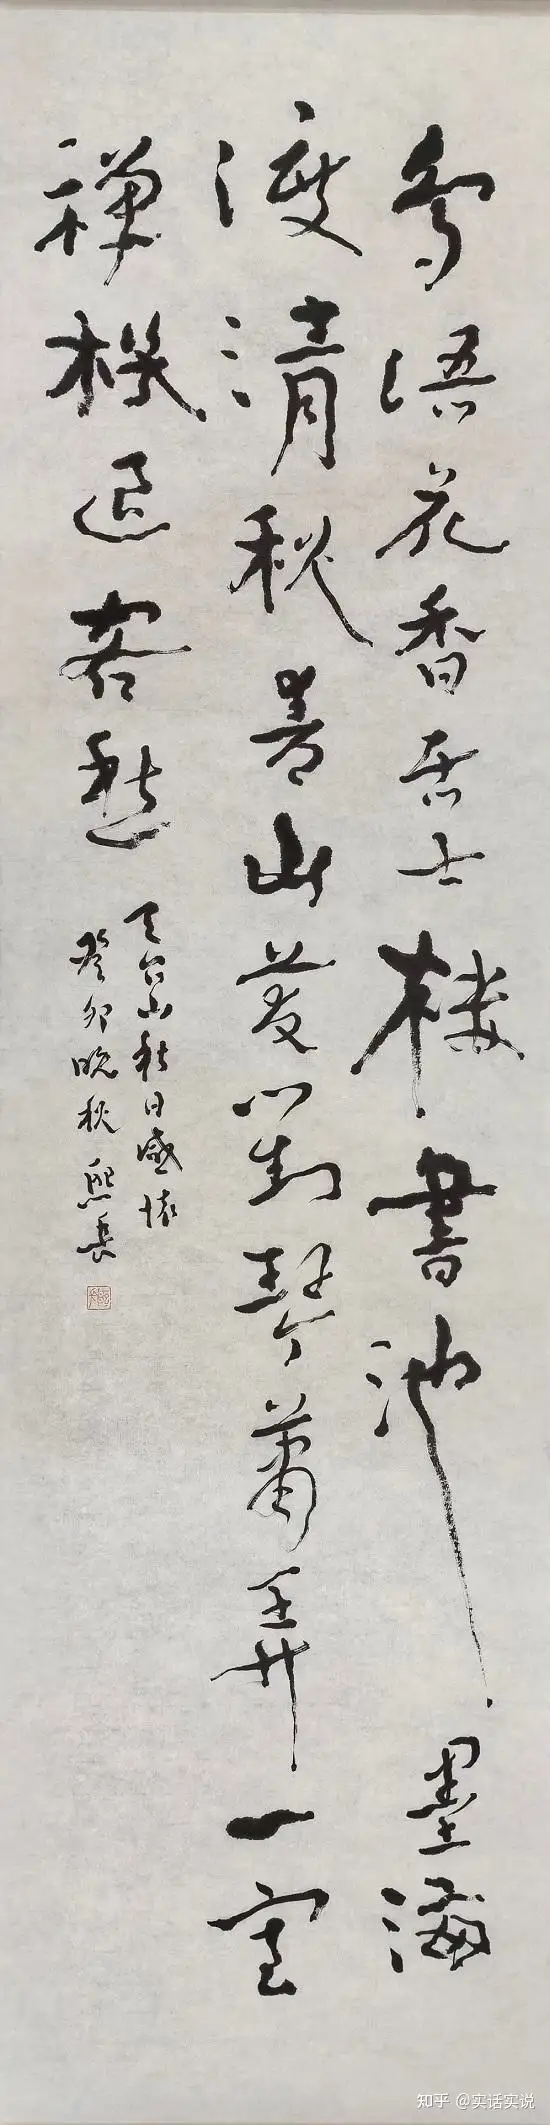 鸟语花香居士楼书池墨海
渡清秋青山万对琴箫弄一室
禅机退客愁
天台山秋日感怀
癸卯晚秋熙长
知乎 @实话实说